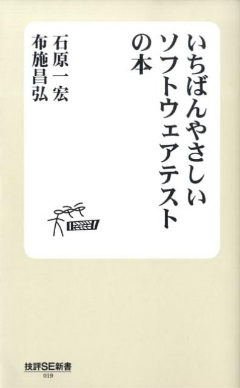 いちばんやさしい
ソフトウェアテスト
の本
石原一宏
布施昌弘
技評SE新書
019